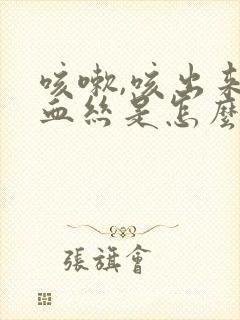 咳嗽,咳出来
血絲是怎麼
張旗會